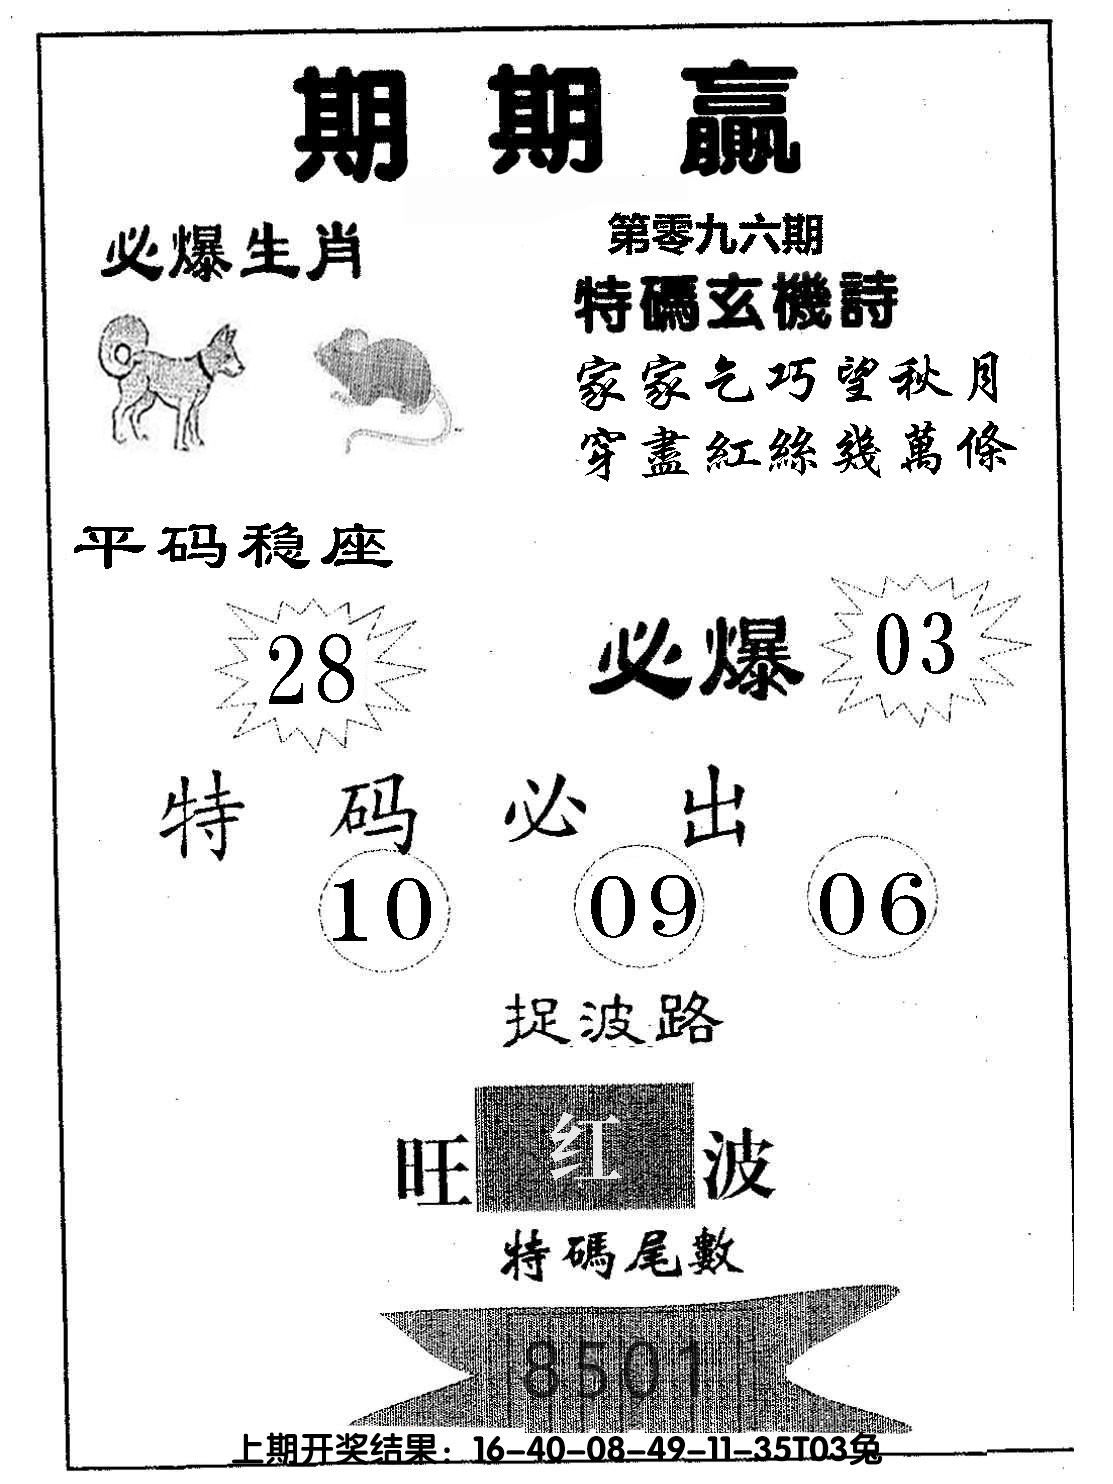 期期赢
必爆生肖
第零九六期
特碼玄機詩
家家乞巧望秋月
穿盡紅絲幾萬條
平码稳座
28
必爆
03
特码必出
10 09 06
捉波路
旺红波
特碼尾數
8501
上期开奖结果：16-40-08-49-11-35T03兔